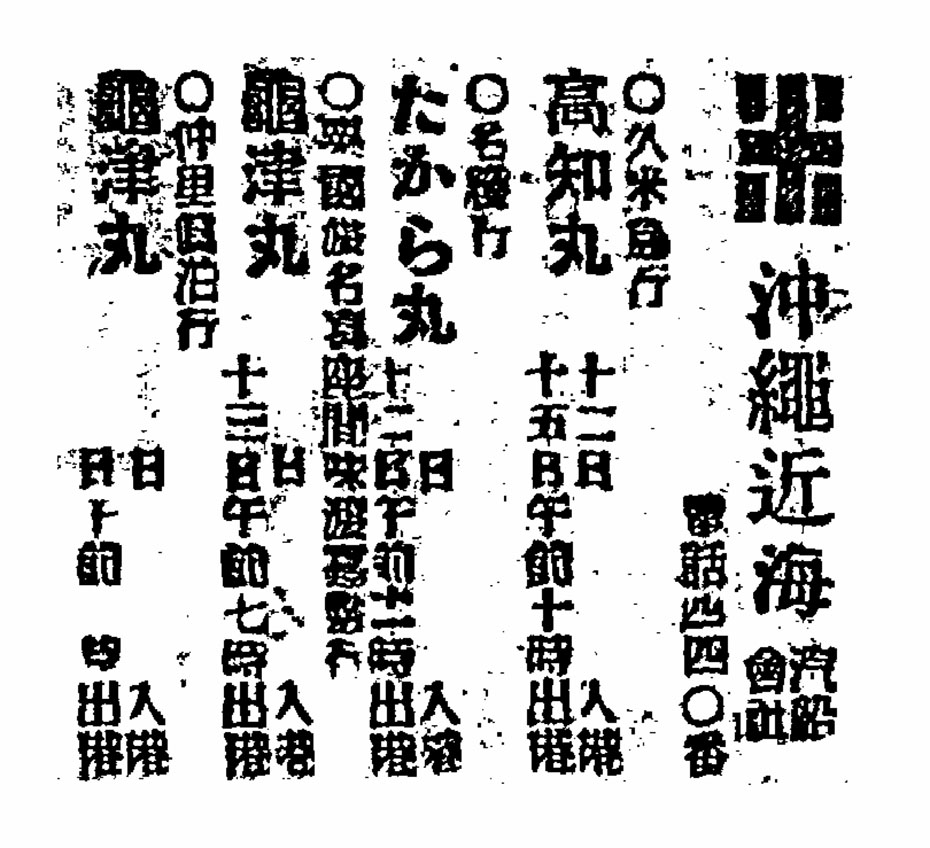 沖繩近海汽船會社
電話四四〇番
〇久米島行
高知丸
十二日入港
十五日午前十時出港
〇名護行
たから丸
日入港
十二日午前十一時出港
〇粟國渡名喜座間味渡嘉敷行
龜津丸
日入港
十三日午前七時出港
〇仲里眞泊行
龜津丸
日入港
日午前 時出港